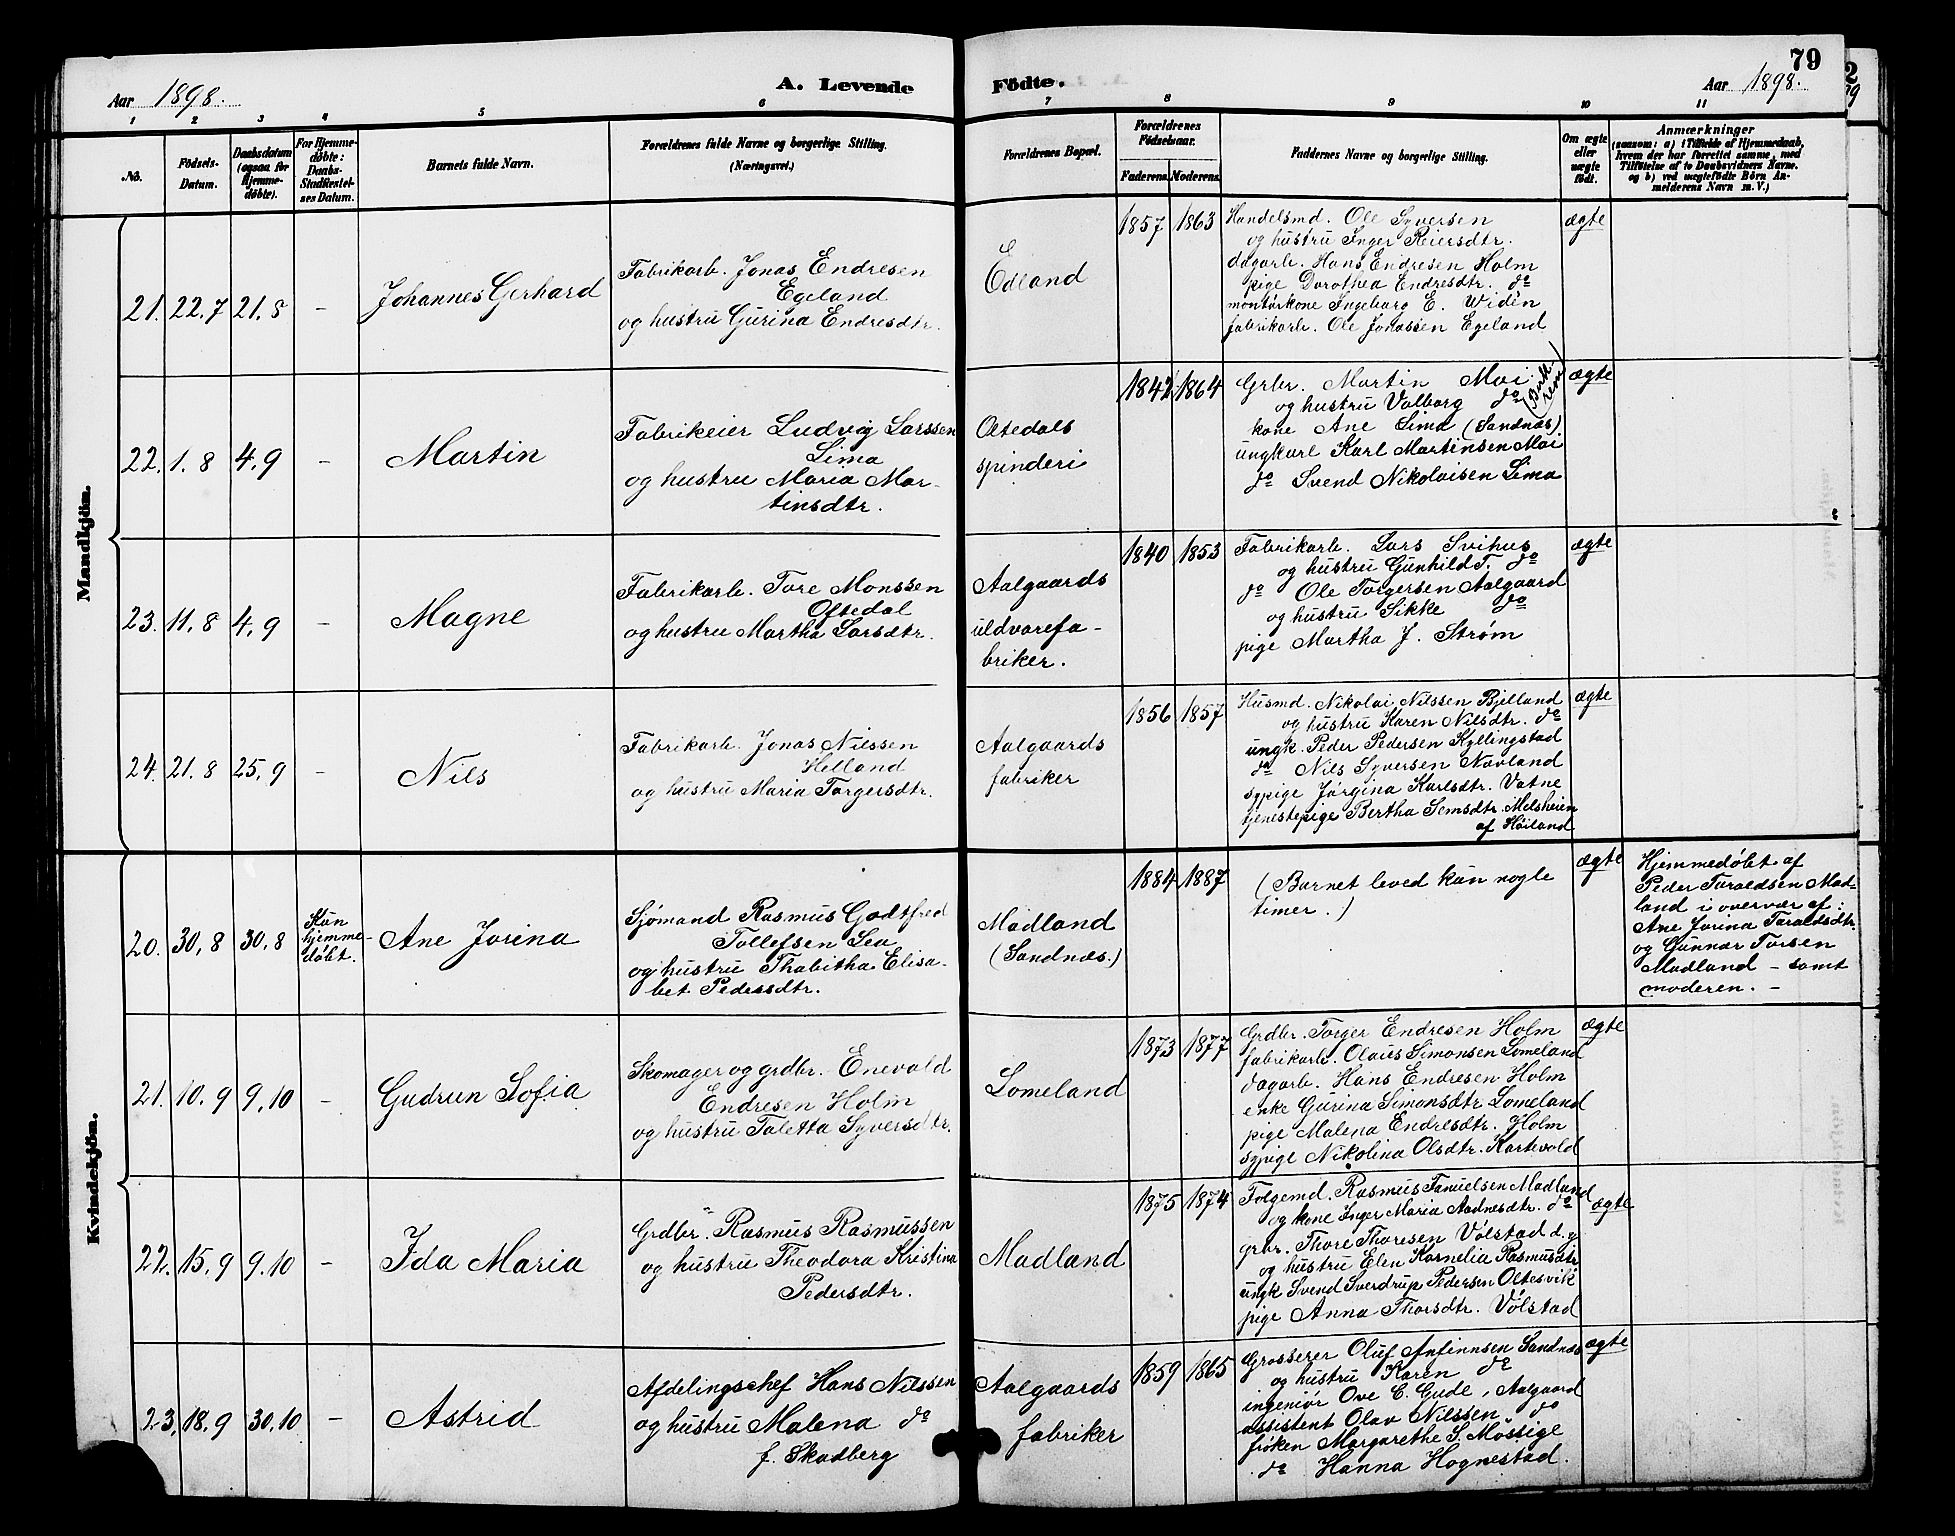 79
Aar 1898. A. Levende Födte. Aar 1898.
1 2 3 4 5 6 7 8 9 10 11
No.
Födsels-
Datum.
Daabsdatum
(ogsaa for
Hjemme-
döbte).
For Hjemme-
döbte:
Daabs-
Stadfæstel-
ses Datum.
Barnets fulde Navn.
Forældrenes fulde Navne og borgerlige Stilling.
(Næringsvei.)
Forældrenes Bopæl.
Forældrenes
Födselsaar.
Faderens. Moderens.
Faddernes Navne og borgerlige Stilling.
Om ægte
eller
uægte
födt.
Anmærkninger
(saasom: a) i Tilfælde af Hjemmedaab,
hvem der har forrettet samme, med
Tilföielse af to Daabsvidners Navne.
og b) ved uægtefödte Börn An-
melderens Navn m. V.)
Mandkjön.
21. 22.7 21.8 - Johannes Gerhard
Fabrikarb. Jonas Endresen
Egeland
og hustru Gurina Endresdtr.
Edland
1857 1863
Handelsmd. Ole Syversen
og hustru Inger Reiersdtr.
dagarb. Hans Endresen Holm
pige Dorothea Endresdtr. do
montørkone Ingeborg E. Widén
fabrikarb. Ole Jonassen Egeland
ægte
22. 1.8 4.9 - Martin
Fabrikeier Ludvig Larssen
Lima
og hustru Maria Mar-
tinsdtr.
Oltedals
spinderi
1842 1864
Grbr. Martin Moi
og hustru Valborg do (Birk-
rem)
kone Ane Lima (Sandnæs)
ungkarl Karl Martinsen Moi
do Svend Nikolaisen Lima
ægte
23. 11.8 4.9 - Magne
Fabrikarb. Tore Monssen
Oftedal
og hustru Martha Larsdtr.
Aalgaards
uldvarefa-
briker.
1840 1853
Fabrikarb. Lars Svihus
og hustru Gunhild T. do
do Ole Torgersen Aalgaard
og hustru Sikke do
pige Martha J. Strøm
ægte
24. 21.8 25.9 - Nils
Fabrikarb. Jonas Nilssen
Helland
og hustru Maria Torgersdtr.
Aalgaards
fabriker
1856 1857
Husmd. Nikolai Nilssen Bjelland
og hustru Karen Nilsdtr. do
ungk. Peder Pedersen Kyllingstad
do Nils Syversen Navland
sypige Jørgina Karlsdtr. Vatne
tjenestepige Bertha Semsdtr. Melsheien
af Høiland
ægte
Kvindekjön.
20. 30.8 30.8 Kun
hjemme-
døbt.
Ane Jorina
Sjømand Rasmus Godtfred
Tollefsen Lea
og hustru Thabitha Elisa-
bet Pedersdtr.
Madland
(Sandnæs.)
1884 1887
(Barnet leved kun nogle
timer.)
ægte
Hjemmedøbt af
Peder Taraldsen Mad-
land i overvær af:
Ane Jorina Taraldsdtr.
og Gunnar Torsen
Madland - samt
moderen. -
21. 10.9 9.10 - Gudrun Sofia
Skomager og grdbr. Enevald
Endresen Holm
og hustru Taletta Syversdtr.
Lomeland
1873 1877
Grdbr. Torger Endresen Holm
fabrikarb. Olaus Simonsen Lomeland
dagarb. Hans Endresen Holm
enke Gurina Simonsdtr Lomeland
pige Malena Endresdtr. Holm
sypige Nikolina Olsdtr. Kartevold
ægte
22. 15.9 9.10 - Ida Maria
Grdbr. Rasmus Rasmussen
og hustru Theodora Kristina
Pedersdtr.
Madland
1875 1874
Folgemd. Rasmus Tanuelsen Madland
og kone Inger Maria Aadnesdtr. do
grbr. Thore Thoresen Vølstad d.y
og hustru Elen Kornelia Rasmusdtr
ungk Svend Sverdrup Pedersen Oltesvik
pige Anna Thorsdtr. Vølstad
ægte
23. 18.9 30.10 - Astrid
Afdelingschef Hans Nilssen
og hustru Malena do
f. Skadberg
Aalgaards
fabriker
1859 1865
Grosserer Oluf Anfinnsen Sandnæs
og hustru Karen do
ingeniør Ove C. Gude, Aalgaard
assistent Olav Nilssen do
frøken Margarethe S. Møssige
do Hanna Hognestad.
ægte